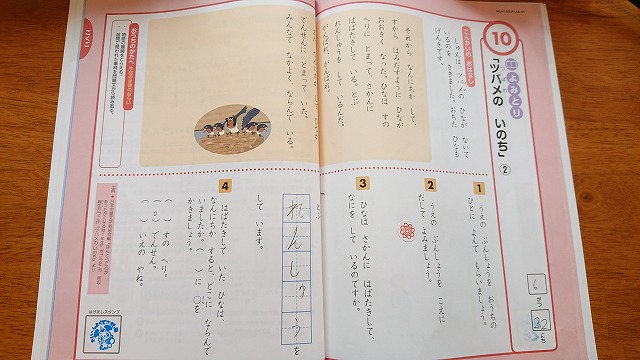 10
よみとり
「ツバメの いのち」②
こんかいの おはなし
しゅんは、ツバメの ひなが ないて
いるのを ききました。おちた ひなも
げんきです。
それから なんにちか して、
すから はみだすように ひなが
おおきく なった。ひなは すの
へりに とまって、さかんに
はばたきして いる。とぶ
れんしゅうを して いるんだ。
がんばれ がんばれ。
して、ひなが
でんせんに とまって いた。
みんなで なかよく ならんで いる。
おうちのかたへ
1
うえの ぶんしょうを おうちの
ひとに よんで もらいましょう。
2
うえの ぶんしょうを こえに
だして よみましょう。
3
ひなは さかんに はばたきして、
なにを して いるのですか。
とぶ
れんしゅう
を
して います。
4
はばたきして いた ひなは、
なんにちか すると どこに ならんで
いましたか。( )に ○を
かきましょう。
( )すの へり。
(○)でんせん。
( )いえの やね。
はげましスタンプ
6
22
にち